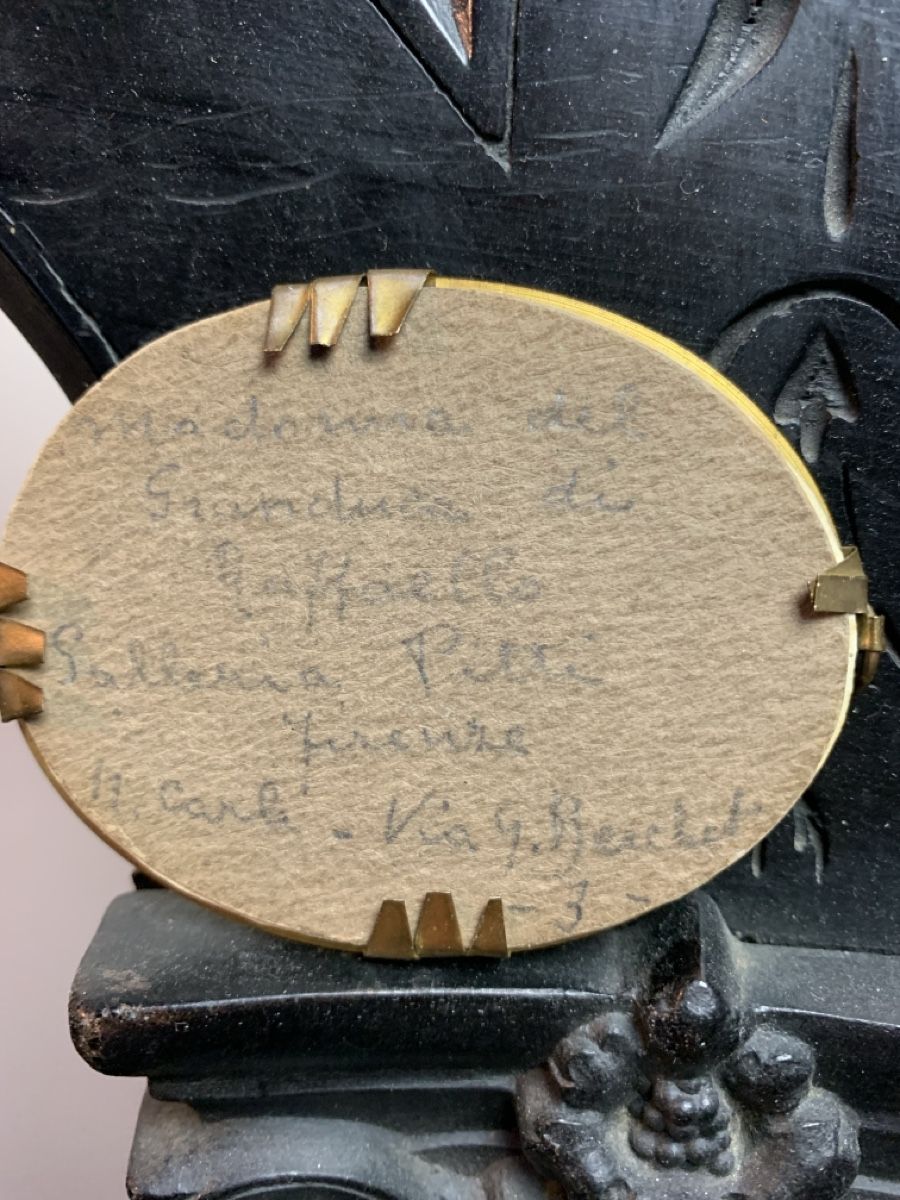 Madonna del
Granduca di
Raffaello
Galleria Pitti
Firenze
Carli - Via G. Berchet
- 3 -